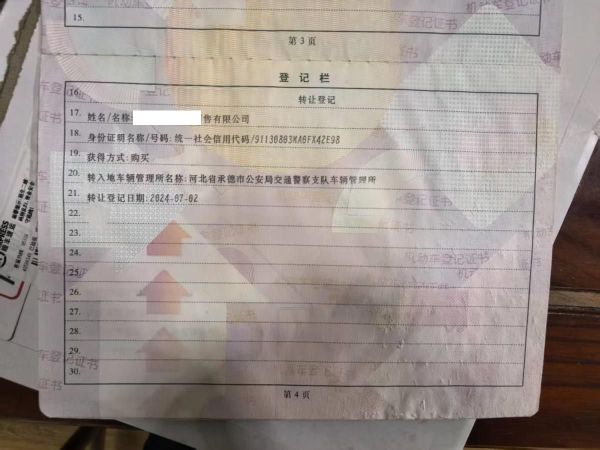 15.
第3页
登记栏
16. 转让登记
17. 姓名/名称: 售有限公司
18. 身份证明名称/号码:统一社会信用代码/91130803MA0FX42E98
19. 获得方式:购买
20. 转入地车辆管理所名称:河北省承德市公安局交通警察支队车辆管理所
21. 转让登记日期:2024-07-02
22.
23.
24.
25.
26.
27.
28.
29.
30.
第4页
机动车登记证书